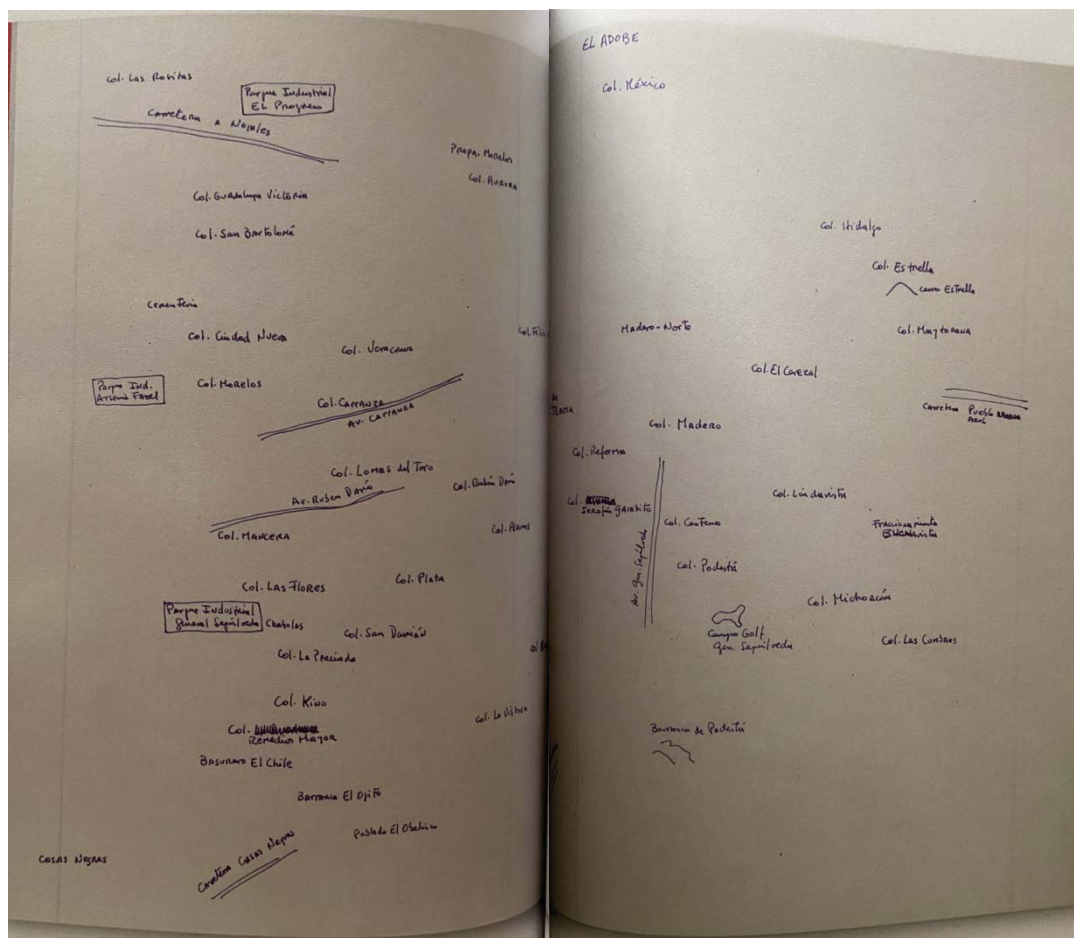 Col. Las Rositas
Parque Industrial
EL Progreso
Carretera A Nogales
Propa. Morelos
Col. Aurora
Col. Guadalupe Victoria
Col. San Bartolomé
Cementerio
Col. Ciudad Nueva
Col. Veracruz
Parque Ind.
Arsenio Farrel
Col. Morelos
Col. Carranza
Av. Carranza
Col. Lomas del Toro
Av. Rubén Darío
Col. Rubén Darío
Col. Mancera
Col. Álamos
Col. Las Flores
Col. Plata
Parque Industrial
General Sepúlveda
Chabolas
Col. San Damián
Col. La Preciada
Col. Kino
Col. La Vistosa
Col.
Remedios Mayor
Basurero El Chile
Barranco El Ojito
Poblado El Obelisco
Casas Negras
Carretera Casas Negras
EL ADOBE
Col. México
Col. Hidalgo
Col. Estrella
Cerro Estrella
Madero-Norte
Col. Maytorena
Col. El Cerezal
Carretera Pueblo
Azul
Col. Madero
Col. Reforma
Col.
Serafín Garabito
Col. Lindavista
Col. Centeno
Fraccionamiento
Buenavista
Av. Gen. Sepúlveda
Col. Podestá
Col. Michoacán
Campo Golf
Gen. Sepúlveda
Col. Las Cumbres
Barranco de Podestá